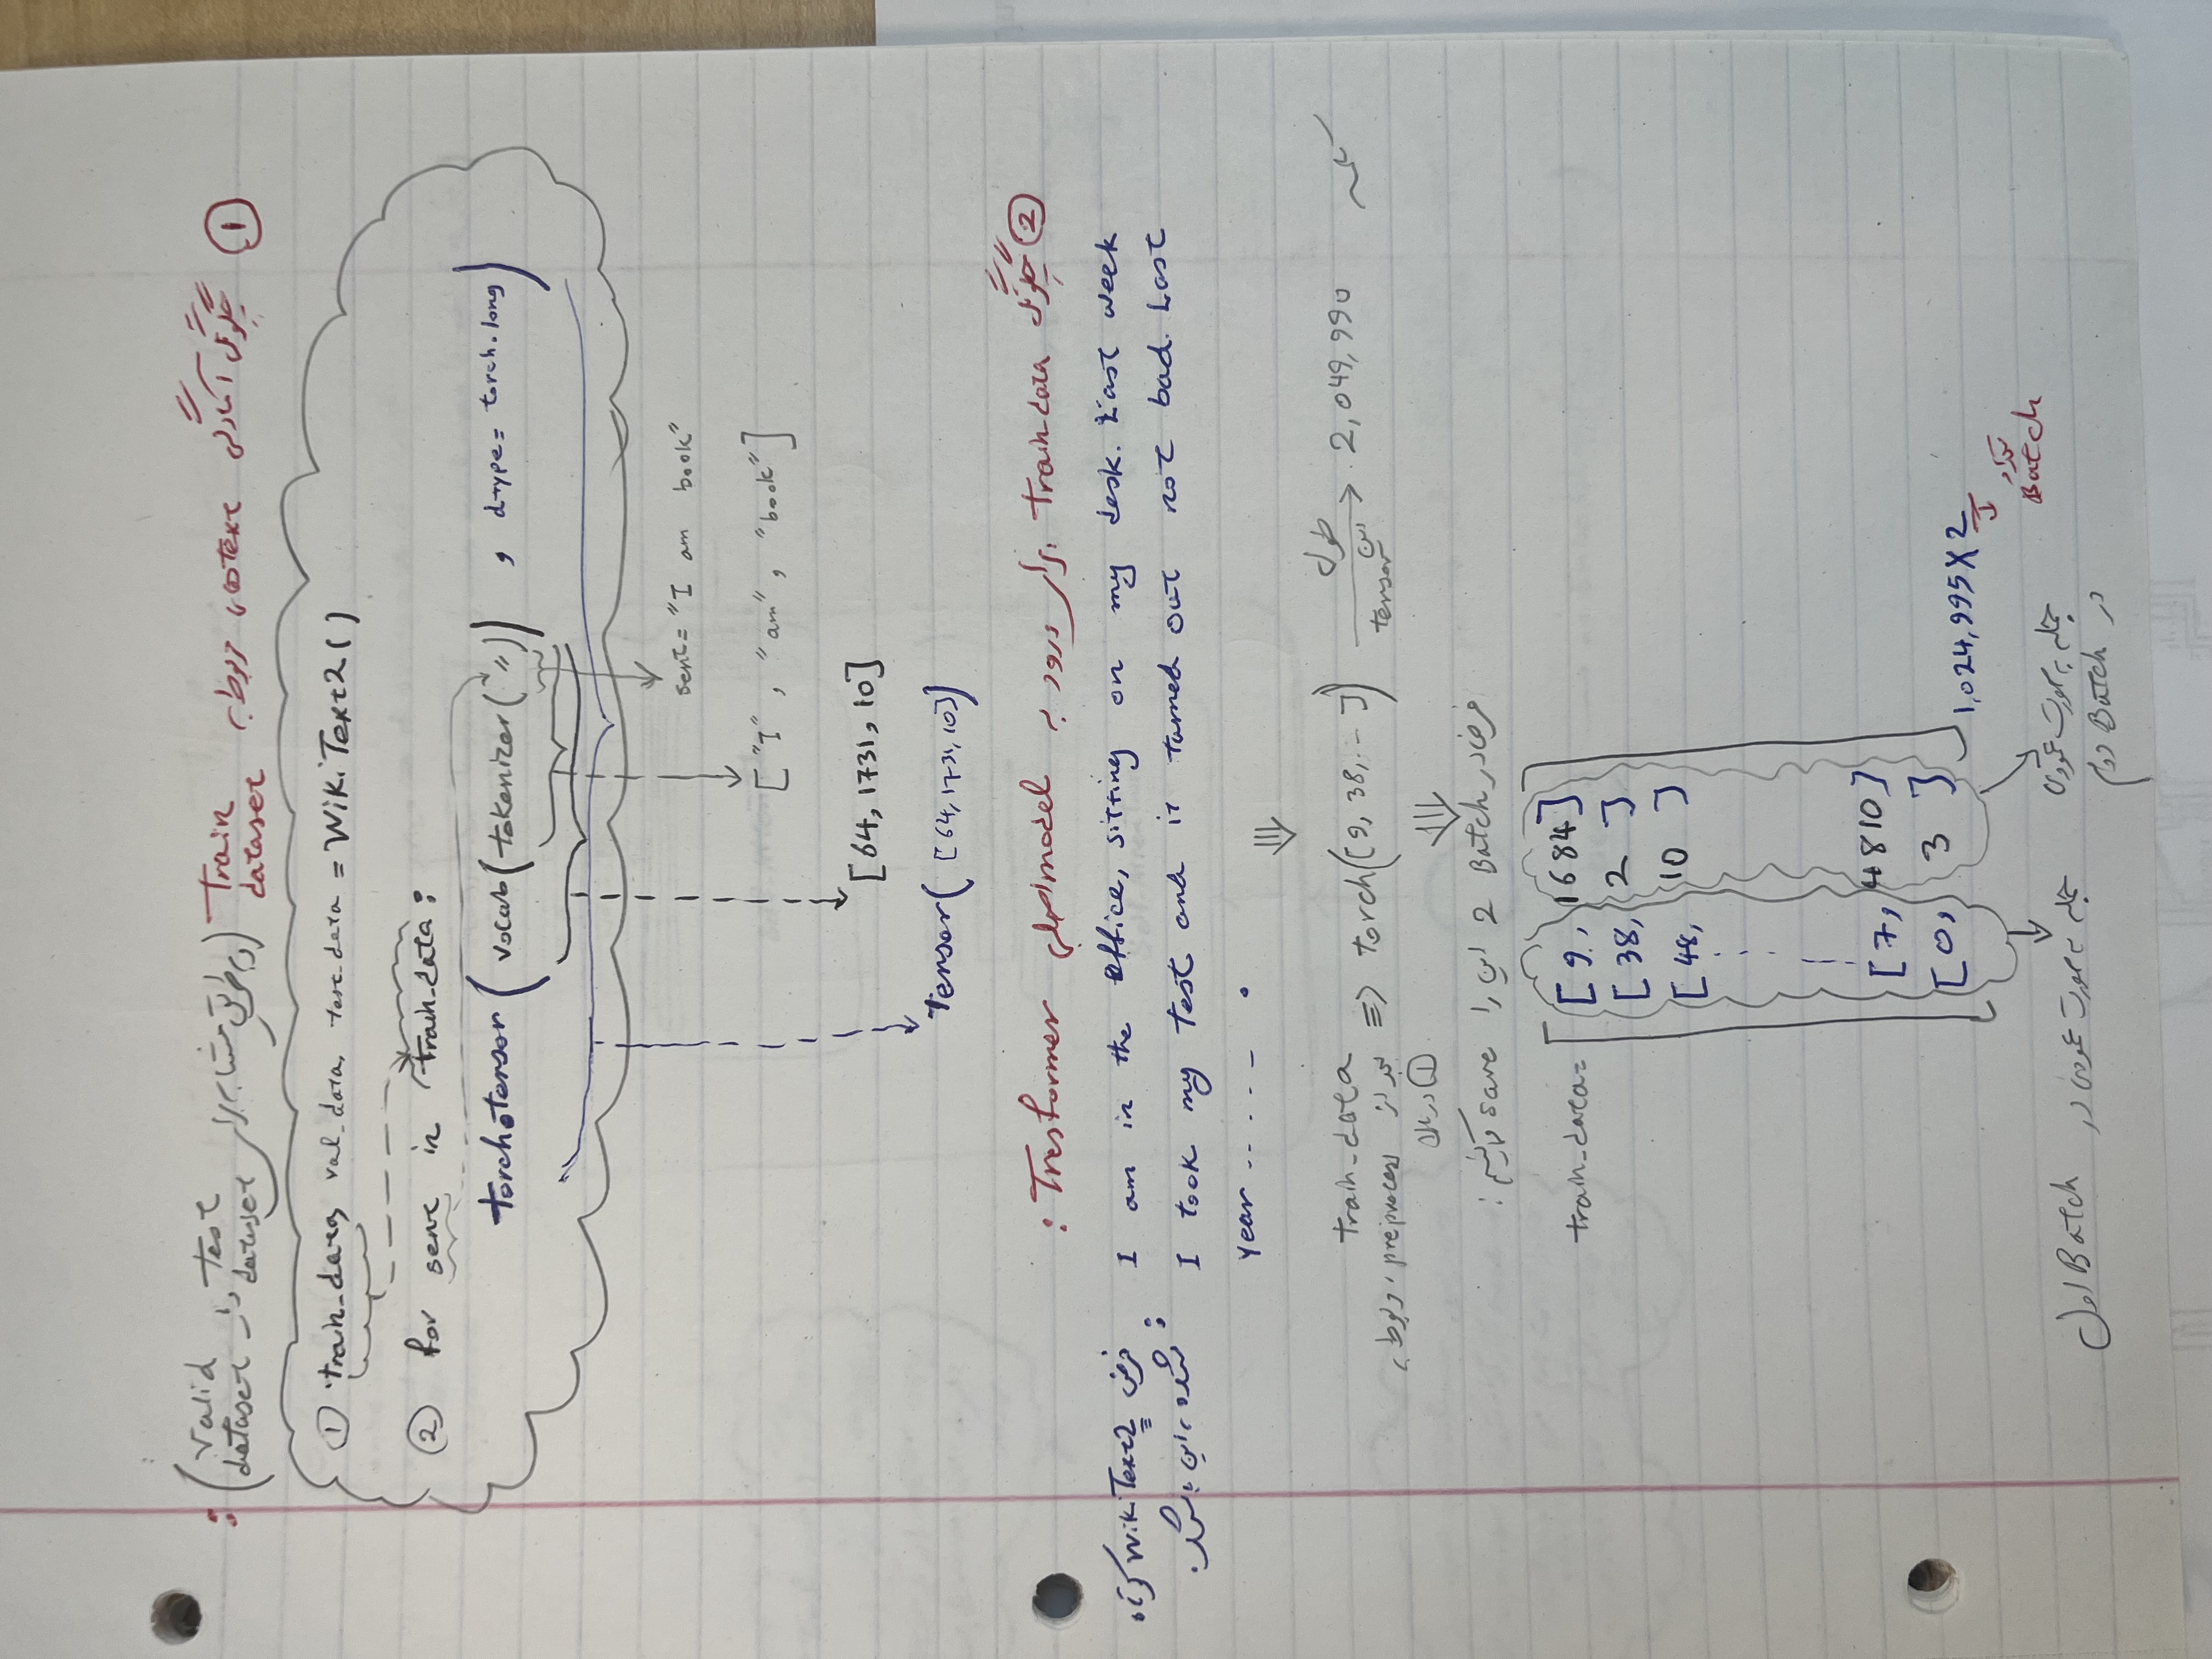 ① چگونگی آمادگی textهای مربوط به Train dataset (و به طریق مشابه برای test dataset و از valid dataset) :
① train_data, val_data, test_data = WikiText2()
② for sent in train_data:
torch.tensor(vocab(tokenizer(")) , dtype= torch.long)
sent= "I am book"
["I", "am", "book"]
[64, 1731, 10]
Tensor([64, 1731, 10])
② چگونگی Train-data برای ورود به model اصلی Tresformer :
فرض WikiText2 کوتاه
شده، این باشد :
I am in the office, sitting on my desk. Last week
I took my test and it turned out not bad. Last
year ..... .
train_data
بعد از preprocess مربوط به
① در بالا
≡> torch([9, 38, ... ]) طول این tensor 2,049,990 کلمه
فرض در 2 Batch این را save می‌کنیم :
train_data=
[9, 1684]
[38, 2 ]
[48, 10 ]
[7, 4810]
[0, 3 ]
1,024,995 X 2
تعداد Batch
جمله به صورت عمودی در Batch اول
جمله به صورت عمودی
در Batch دوم